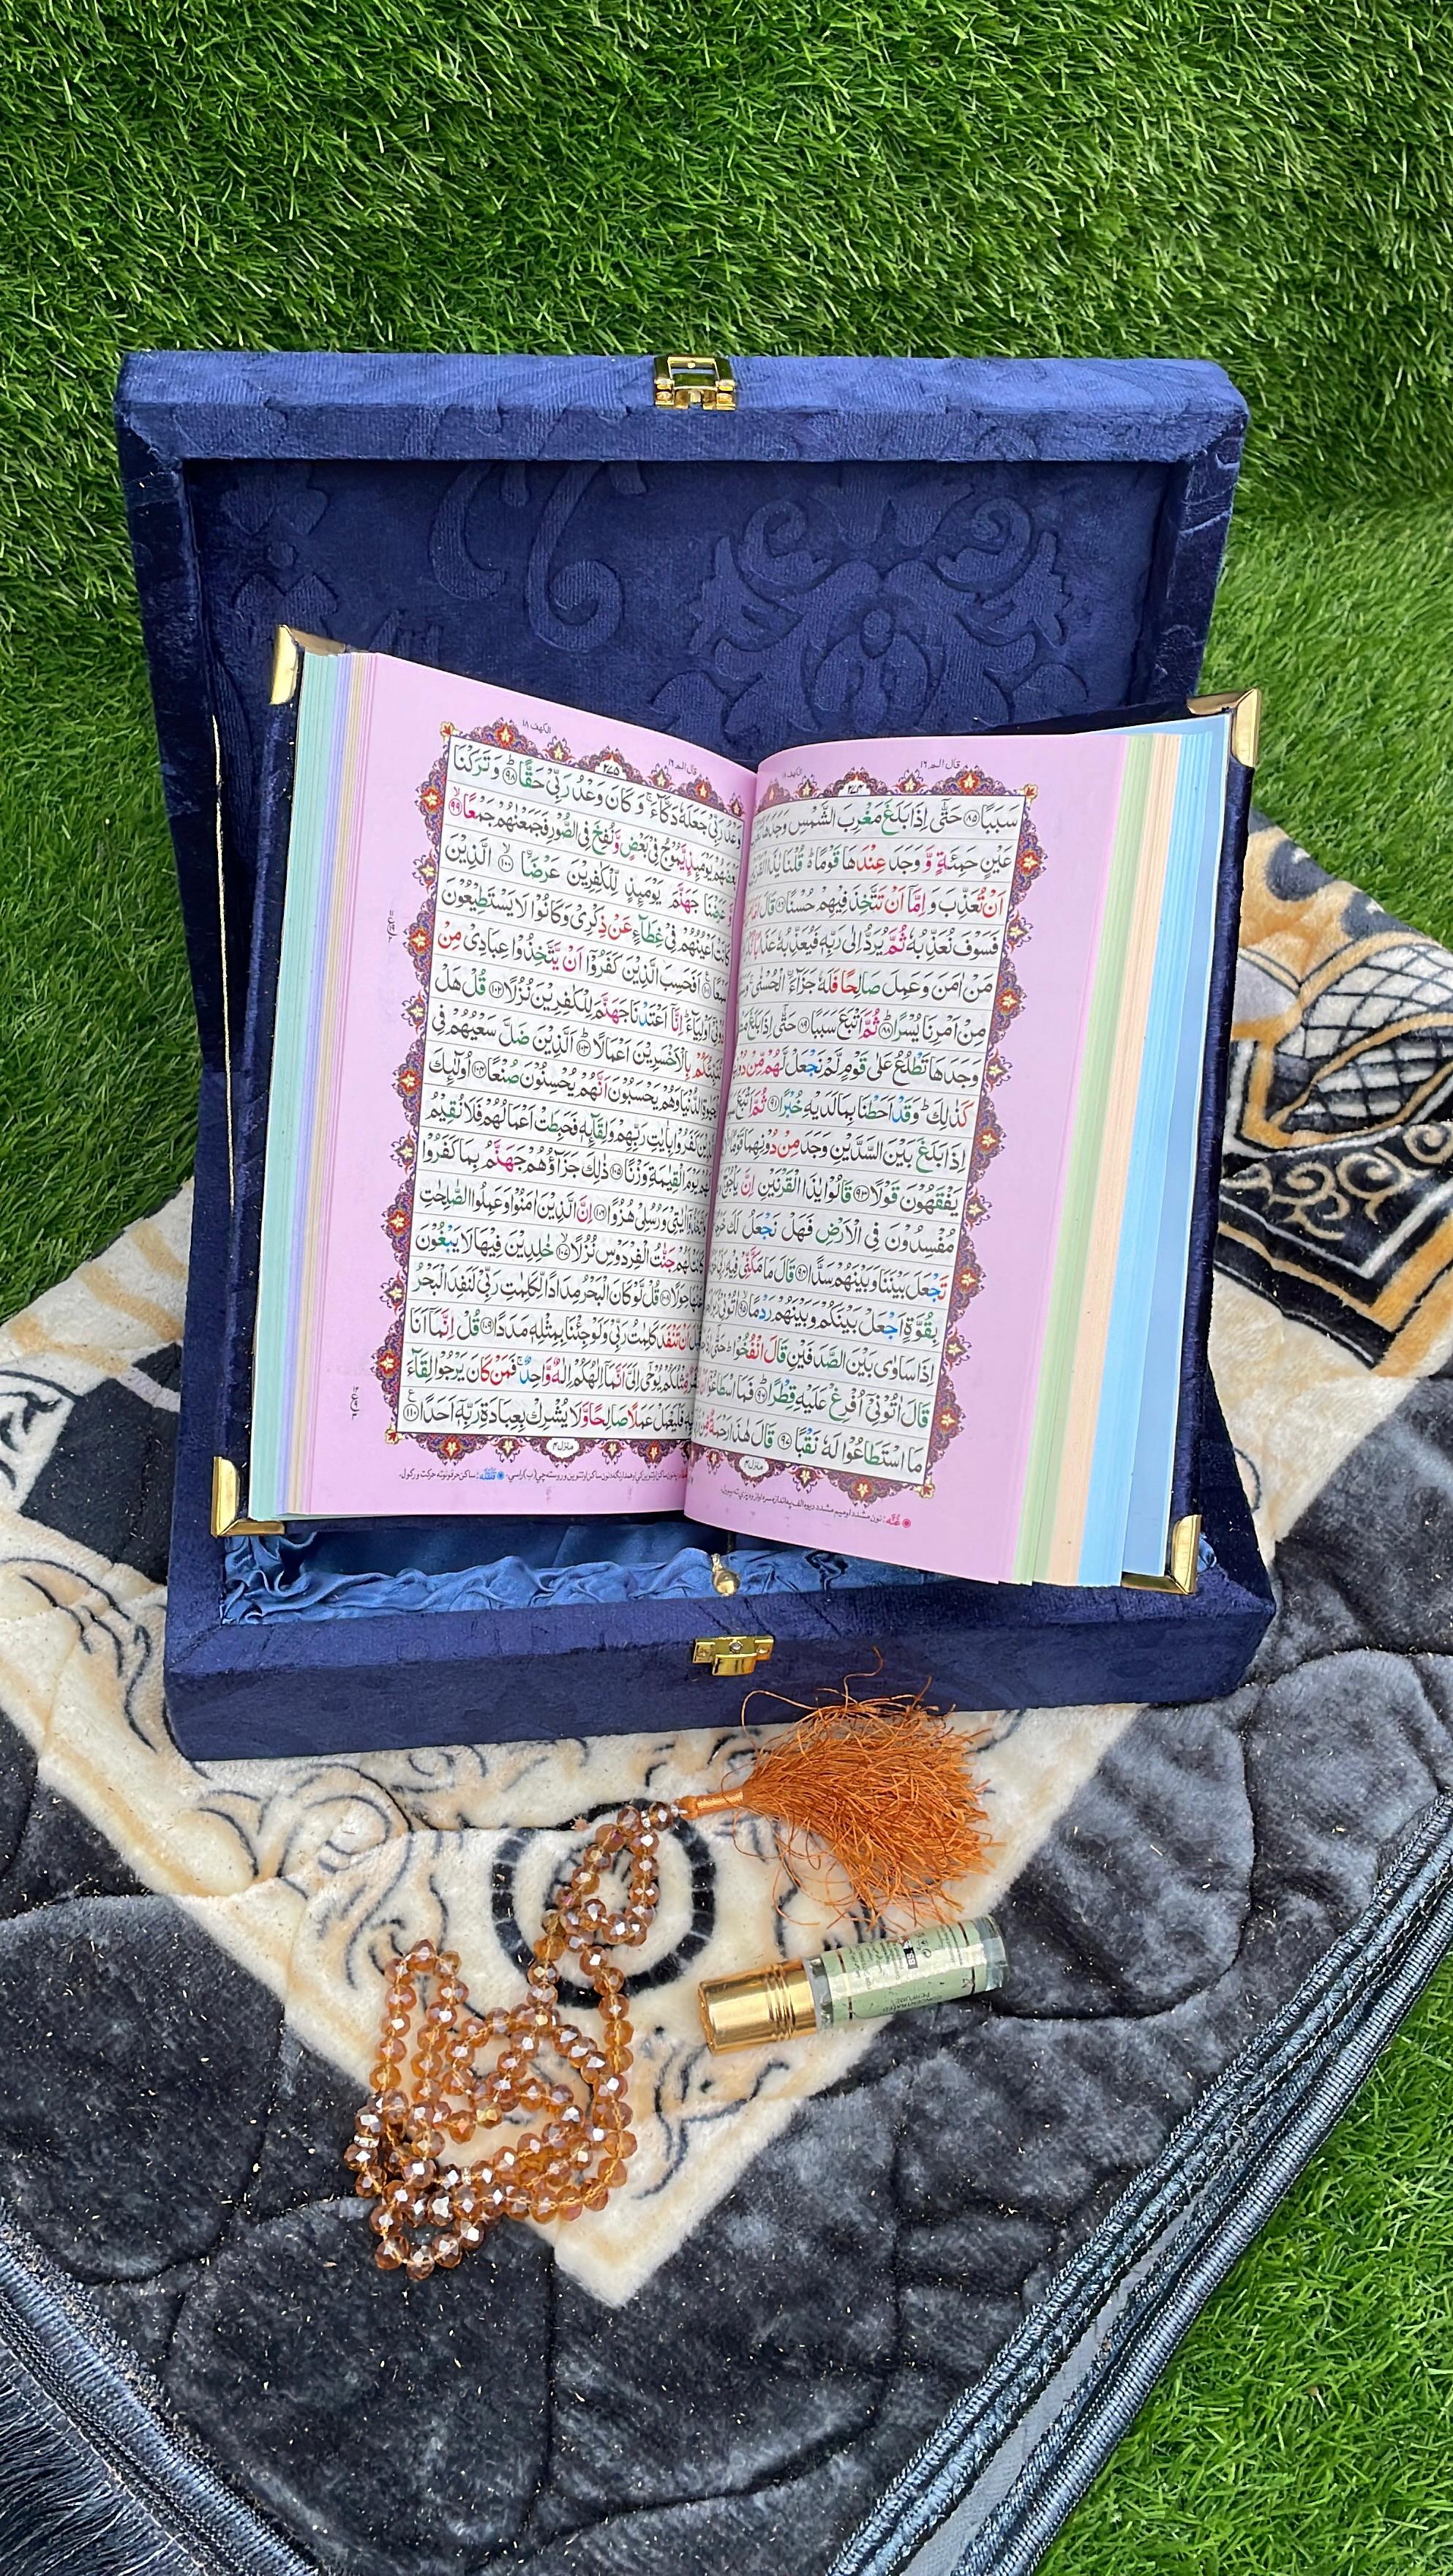 قال الم ١٦
الكهف ١٨
٢٧٤
سَبَبًا ﴿٨٥﴾ حَتّٰٓى اِذَا بَلَغَ مَغْرِبَ الشَّمْسِ وَجَدَهَا
عَيْنٍ حَمِئَةٍ وَّ وَجَدَ عِنْدَهَا قَوْمًا ؕ قُلْنَا يٰذَا الْقَرْنَيْنِ
اَنْ تُعَذِّبَ وَ اِمَّآ اَنْ تَتَّخِذَ فِيْهِمْ حُسْنًا ﴿٨٦﴾ قَالَ اَمَّا
فَسَوْفَ نُعَذِّبُهٗ ثُمَّ يُرَدُّ اِلٰى رَبِّهٖ فَيُعَذِّبُهٗ عَذَابًا
مَنْ اٰمَنَ وَعَمِلَ صَالِحًا فَلَهٗ جَزَآءَ ۨالْحُسْنٰى ۚ
مِنْ اَمْرِنَا يُسْرًا ﴿٨٨﴾ ثُمَّ اَتْبَعَ سَبَبًا ﴿٨٩﴾ حَتّٰٓى اِذَا بَلَغَ
وَجَدَهَا تَطْلُعُ عَلٰى قَوْمٍ لَّمْ نَجْعَلْ لَّهُمْ مِّنْ دُوْنِهَا
كَذٰلِكَ ؕ وَقَدْ اَحَطْنَا بِمَا لَدَيْهِ خُبْرًا ﴿٩١﴾ ثُمَّ اَتْبَعَ
اِذَا بَلَغَ بَيْنَ السَّدَّيْنِ وَجَدَ مِنْ دُوْنِهِمَا قَوْمًا
يَفْقَهُوْنَ قَوْلًا ﴿٩٣﴾ قَالُوْا يٰذَا الْقَرْنَيْنِ اِنَّ يَاْجُوْجَ
مُفْسِدُوْنَ فِى الْاَرْضِ فَهَلْ نَجْعَلُ لَكَ خَرْجًا
تَجْعَلَ بَيْنَنَا وَبَيْنَهُمْ سَدًّا ﴿٩٤﴾ قَالَ مَا مَكَّنِّىْ فِيْهِ رَبِّىْ
بِقُوَّةٍ اَجْعَلْ بَيْنَكُمْ وَبَيْنَهُمْ رَدْمًا ﴿٩٥﴾ اٰتُوْنِىْ زُبَرَ
اِذَا سَاوٰى بَيْنَ الصَّدَفَيْنِ قَالَ انْفُخُوْا ؕ حَتّٰٓى
قَالَ اٰتُوْنِىْٓ اُفْرِغْ عَلَيْهِ قِطْرًا ﴿٩٦﴾ فَمَا اسْطَاعُوْٓا
مَا اسْتَطَاعُوْا لَهٗ نَقْبًا ﴿٩٧﴾ قَالَ هٰذَا رَحْمَةٌ مِّنْ
منزل ٤
غُنّه: نون مشدد او میم مشدد
قال الم ١٦
الكهف ١٨
٢٧٥
وَعْدُ رَبِّىْ جَعَلَهٗ دَكَّآءَ ۚ وَ كَانَ وَعْدُ رَبِّىْ حَقًّا ؕ ﴿٩٨﴾ وَتَرَكْنَا
بَعْضَهُمْ يَوْمَئِذٍ يَّمُوْجُ فِىْ بَعْضٍ وَّنُفِخَ فِى الصُّوْرِ فَجَمَعْنٰهُمْ جَمْعًا ۙ ﴿٩٩﴾
عَرَضْنَا جَهَنَّمَ يَوْمَئِذٍ لِّلْكٰفِرِيْنَ عَرْضًا ۙ ﴿١٠٠﴾ الَّذِيْنَ
كَانَتْ اَعْيُنُهُمْ فِىْ غِطَآءٍ عَنْ ذِكْرِىْ وَكَانُوْا لَا يَسْتَطِيْعُوْنَ
سَمْعًا ﴿١٠١﴾ اَفَحَسِبَ الَّذِيْنَ كَفَرُوْٓا اَنْ يَّتَّخِذُوْا عِبَادِىْ مِنْ
دُوْنِىْٓ اَوْلِيَآءَ ؕ اِنَّآ اَعْتَدْنَا جَهَنَّمَ لِلْكٰفِرِيْنَ نُزُلًا ﴿١٠٢﴾ قُلْ هَلْ
نُنَبِّئُكُمْ بِالْاَخْسَرِيْنَ اَعْمَالًا ﴿١٠٣﴾ اَلَّذِيْنَ ضَلَّ سَعْيُهُمْ فِى
الْحَيٰوةِ الدُّنْيَا وَهُمْ يَحْسَبُوْنَ اَنَّهُمْ يُحْسِنُوْنَ صُنْعًا ﴿١٠٤﴾ اُولٰٓئِكَ
الَّذِيْنَ كَفَرُوْا بِاٰيٰتِ رَبِّهِمْ وَلِقَآئِهٖ فَحَبِطَتْ اَعْمَالُهُمْ فَلَا نُقِيْمُ
لَهُمْ يَوْمَ الْقِيٰمَةِ وَزْنًا ﴿١٠٥﴾ ذٰلِكَ جَزَآؤُهُمْ جَهَنَّمُ بِمَا كَفَرُوْا
وَاتَّخَذُوْٓا اٰيٰتِىْ وَرُسُلِىْ هُزُوًا ﴿١٠٦﴾ اِنَّ الَّذِيْنَ اٰمَنُوْا وَعَمِلُوا الصّٰلِحٰتِ
كَانَتْ لَهُمْ جَنّٰتُ الْفِرْدَوْسِ نُزُلًا ۙ ﴿١٠٧﴾ خٰلِدِيْنَ فِيْهَا لَا يَبْغُوْنَ
عَنْهَا حِوَلًا ﴿١٠٨﴾ قُلْ لَّوْ كَانَ الْبَحْرُ مِدَادًا لِّكَلِمٰتِ رَبِّىْ لَنَفِدَ الْبَحْرُ
قَبْلَ اَنْ تَنْفَدَ كَلِمٰتُ رَبِّىْ وَلَوْ جِئْنَا بِمِثْلِهٖ مَدَدًا ﴿١٠٩﴾ قُلْ اِنَّمَآ اَنَا
بَشَرٌ مِّثْلُكُمْ يُوْحٰٓى اِلَىَّ اَنَّمَآ اِلٰهُكُمْ اِلٰهٌ وَّاحِدٌ ۚ فَمَنْ كَانَ يَرْجُوْا لِقَآءَ
رَبِّهٖ فَلْيَعْمَلْ عَمَلًا صَالِحًا وَّلَا يُشْرِكْ بِعِبَادَةِ رَبِّهٖٓ اَحَدًا ﴿١١٠﴾
منزل ٤
قلقله: ساکن حرفونو ته حرکت ورکول.
CONCENTRATED
PERFUME